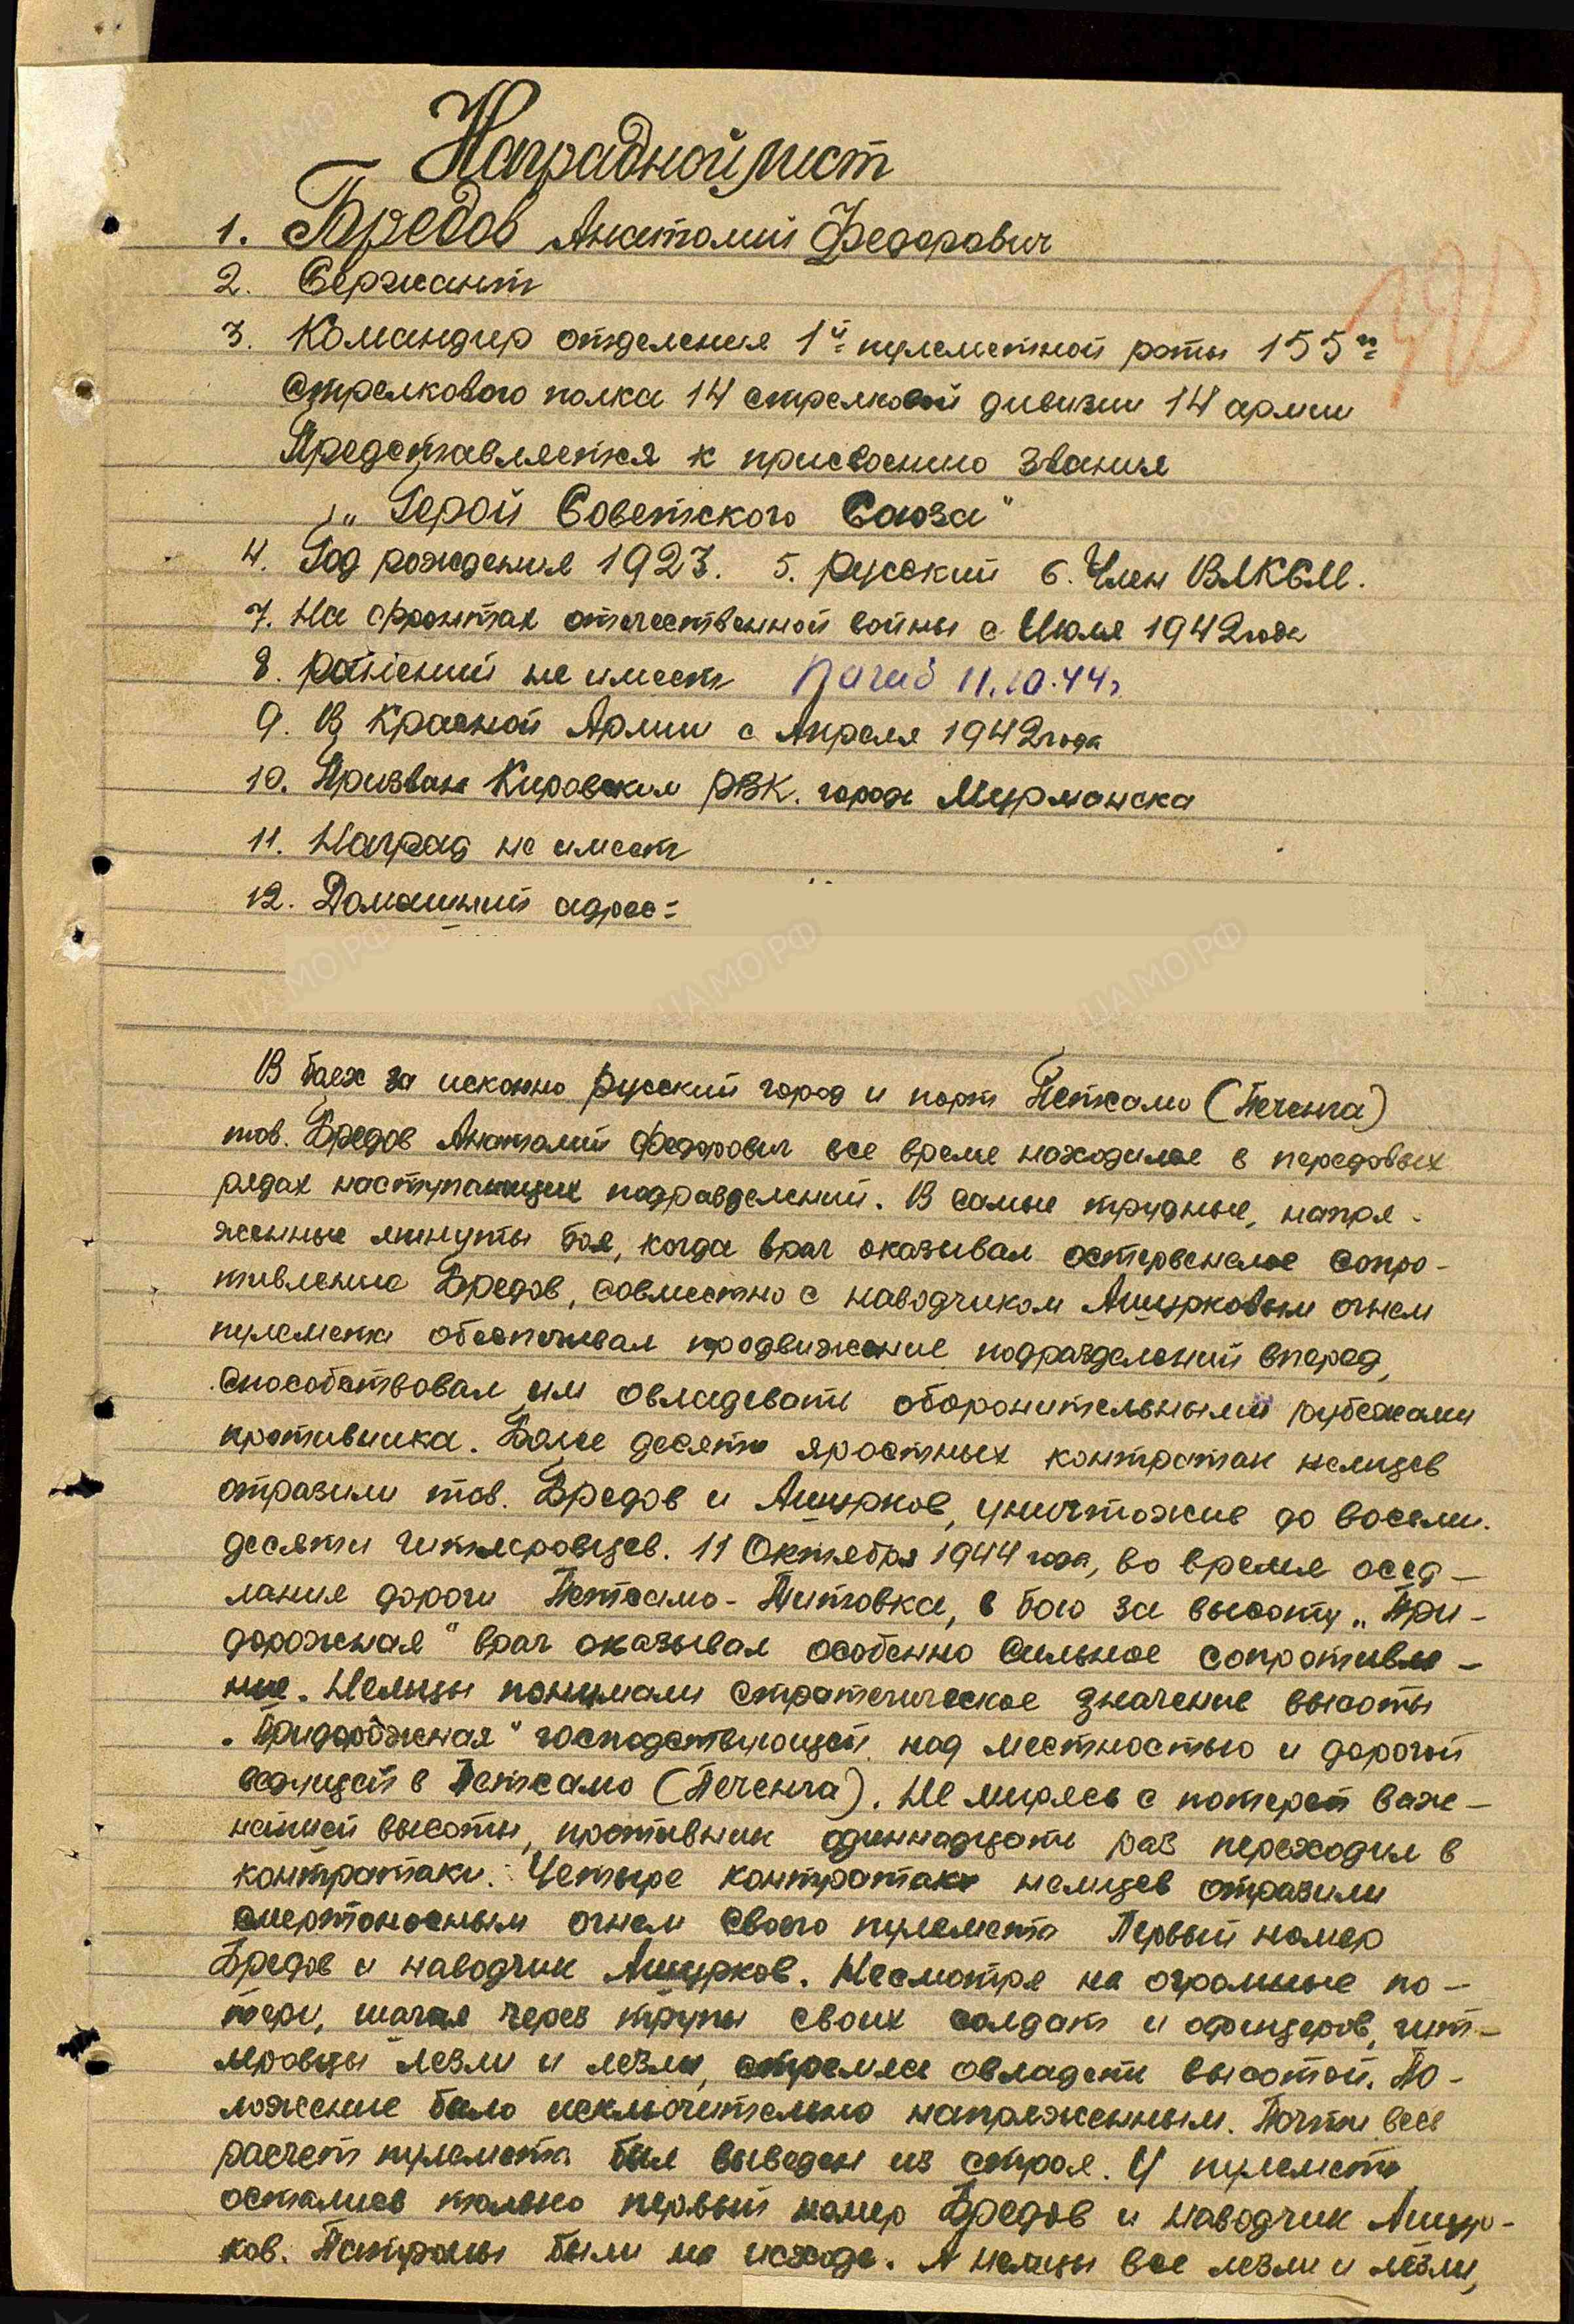 Наградной лист
1. Бредов Анатолий Федорович
2. Сержант
3. Командир отделения 1й пулеметной роты 155го
стрелкового полка 14 стрелковой дивизии 14 армии
Представляется к присвоению звания
„Герой Советского Союза"
4. Год рождения 1923. 5. русский 6. Член ВЛКСМ.
7. На фронтах отечественной войны с Июля 1942 года
8. ранений не имеет Погиб 11.10.44г
9. В Красной Армии с Апреля 1942 года
10. Призван Кировским РВК. города Мурманска
11. Наград не имеет
12. Домашний адрес:
В боях за исконно русский город и порт Петсамо (Печенга)
тов. Бредов Анатолий Федорович все время находился в передовых
рядах наступающих подразделений. В самые трудные, напря-
женные минуты боя, когда враг оказывал остервенелое сопро-
тивление Бредов, совместно с наводчиком Ашурковым огнем
пулемета обеспечивал продвижение подразделений вперед,
способствовал им овладевать оборонительными рубежами
противника. Более десяти яростных контратак немцев
отразили тов. Бредов и Ашурков, уничтожив до восьми-
десяти гитлеровцев. 11 Октября 1944 года, во время осед-
лания дороги Петсамо - Титовка, в бою за высоту „При-
дорожная" враг оказывал особенно сильное сопротивле-
ние. Немцы понимали стратегическое значение высоты
„Придорожная" господствующей над местностью и дорогой
ведущей в Петсамо (Печенга). Не мирясь с потерей важ-
нейшей высоты, противник одиннадцать раз переходил в
контратаки. Четыре контратаки немцев отразили
смертоносным огнем своего пулемета Первый номер
Бредов и наводчик Ашурков. Несмотря на огромные по-
тери, шагая через трупы своих солдат и офицеров, гит-
леровцы лезли и лезли, стремясь овладеть высотой. По-
ложение было исключительно напряженным. Почти весь
расчет пулемета был выведен из строя. У пулемета
остались только первый номер Бредов и наводчик Ашур-
ков. Патроны были на исходе. А немцы все лезли и лезли,
ЦАМО.РФ